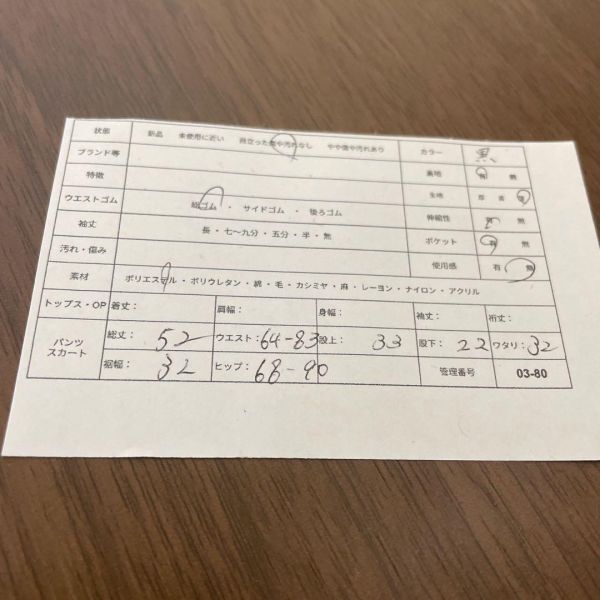 状態 新品 未使用に近い 目立った傷や汚れなし やや傷や汚れあり カラー 黒
ブランド等 裏地 有 無
特徴 生地 厚 薄
ウエストゴム 総ゴム ・ サイドゴム ・ 後ろゴム 伸縮性 有 無
袖丈 長・七〜九分・五分・半・無 ポケット 有 無
汚れ・傷み 使用感 有 無
素材 ポリエステル・ポリウレタン・綿・毛・カシミヤ・麻・レーヨン・ナイロン・アクリル
トップス・OP 着丈： 肩幅： 身幅： 袖丈： 裄丈：
パンツ スカート 総丈： 52 ウエスト： 64-83 股上： 33 股下： 22 ワタリ： 32
裾幅： 32 ヒップ： 68-90 管理番号 03-80